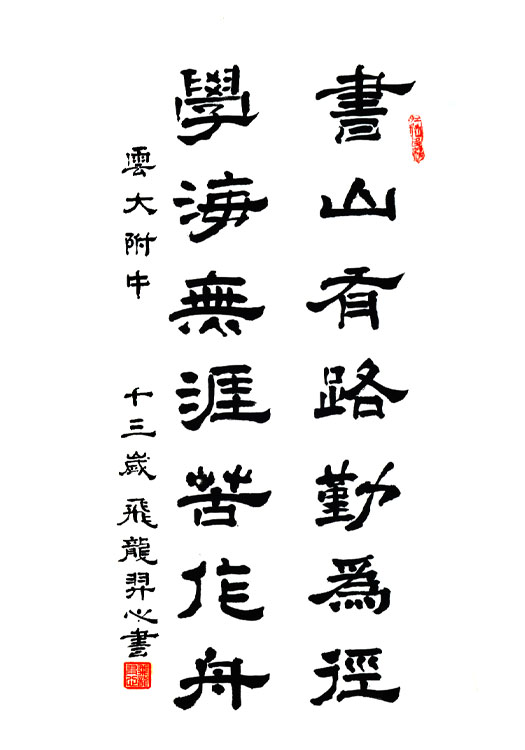 書山有路勤為徑
學海無涯苦作舟
雲大附中 十三歲飛龍羿心書